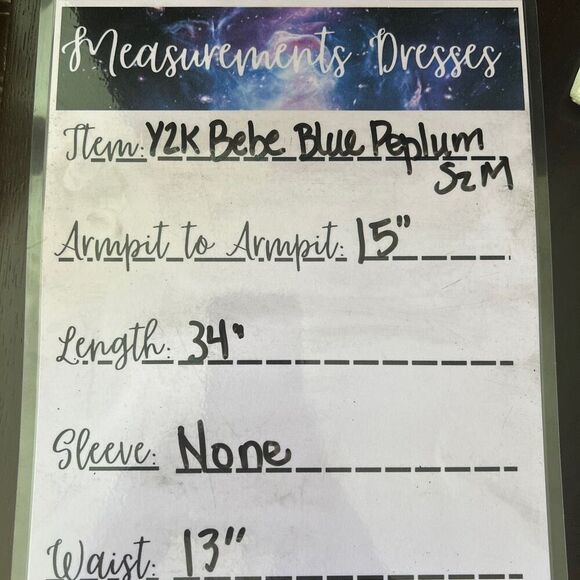 Measurements Dresses
Item: Y2K Bebe Blue Peplum
Sz M
Armpit to Armpit: 15"
Length: 34"
Sleeve: None
Waist: 13"